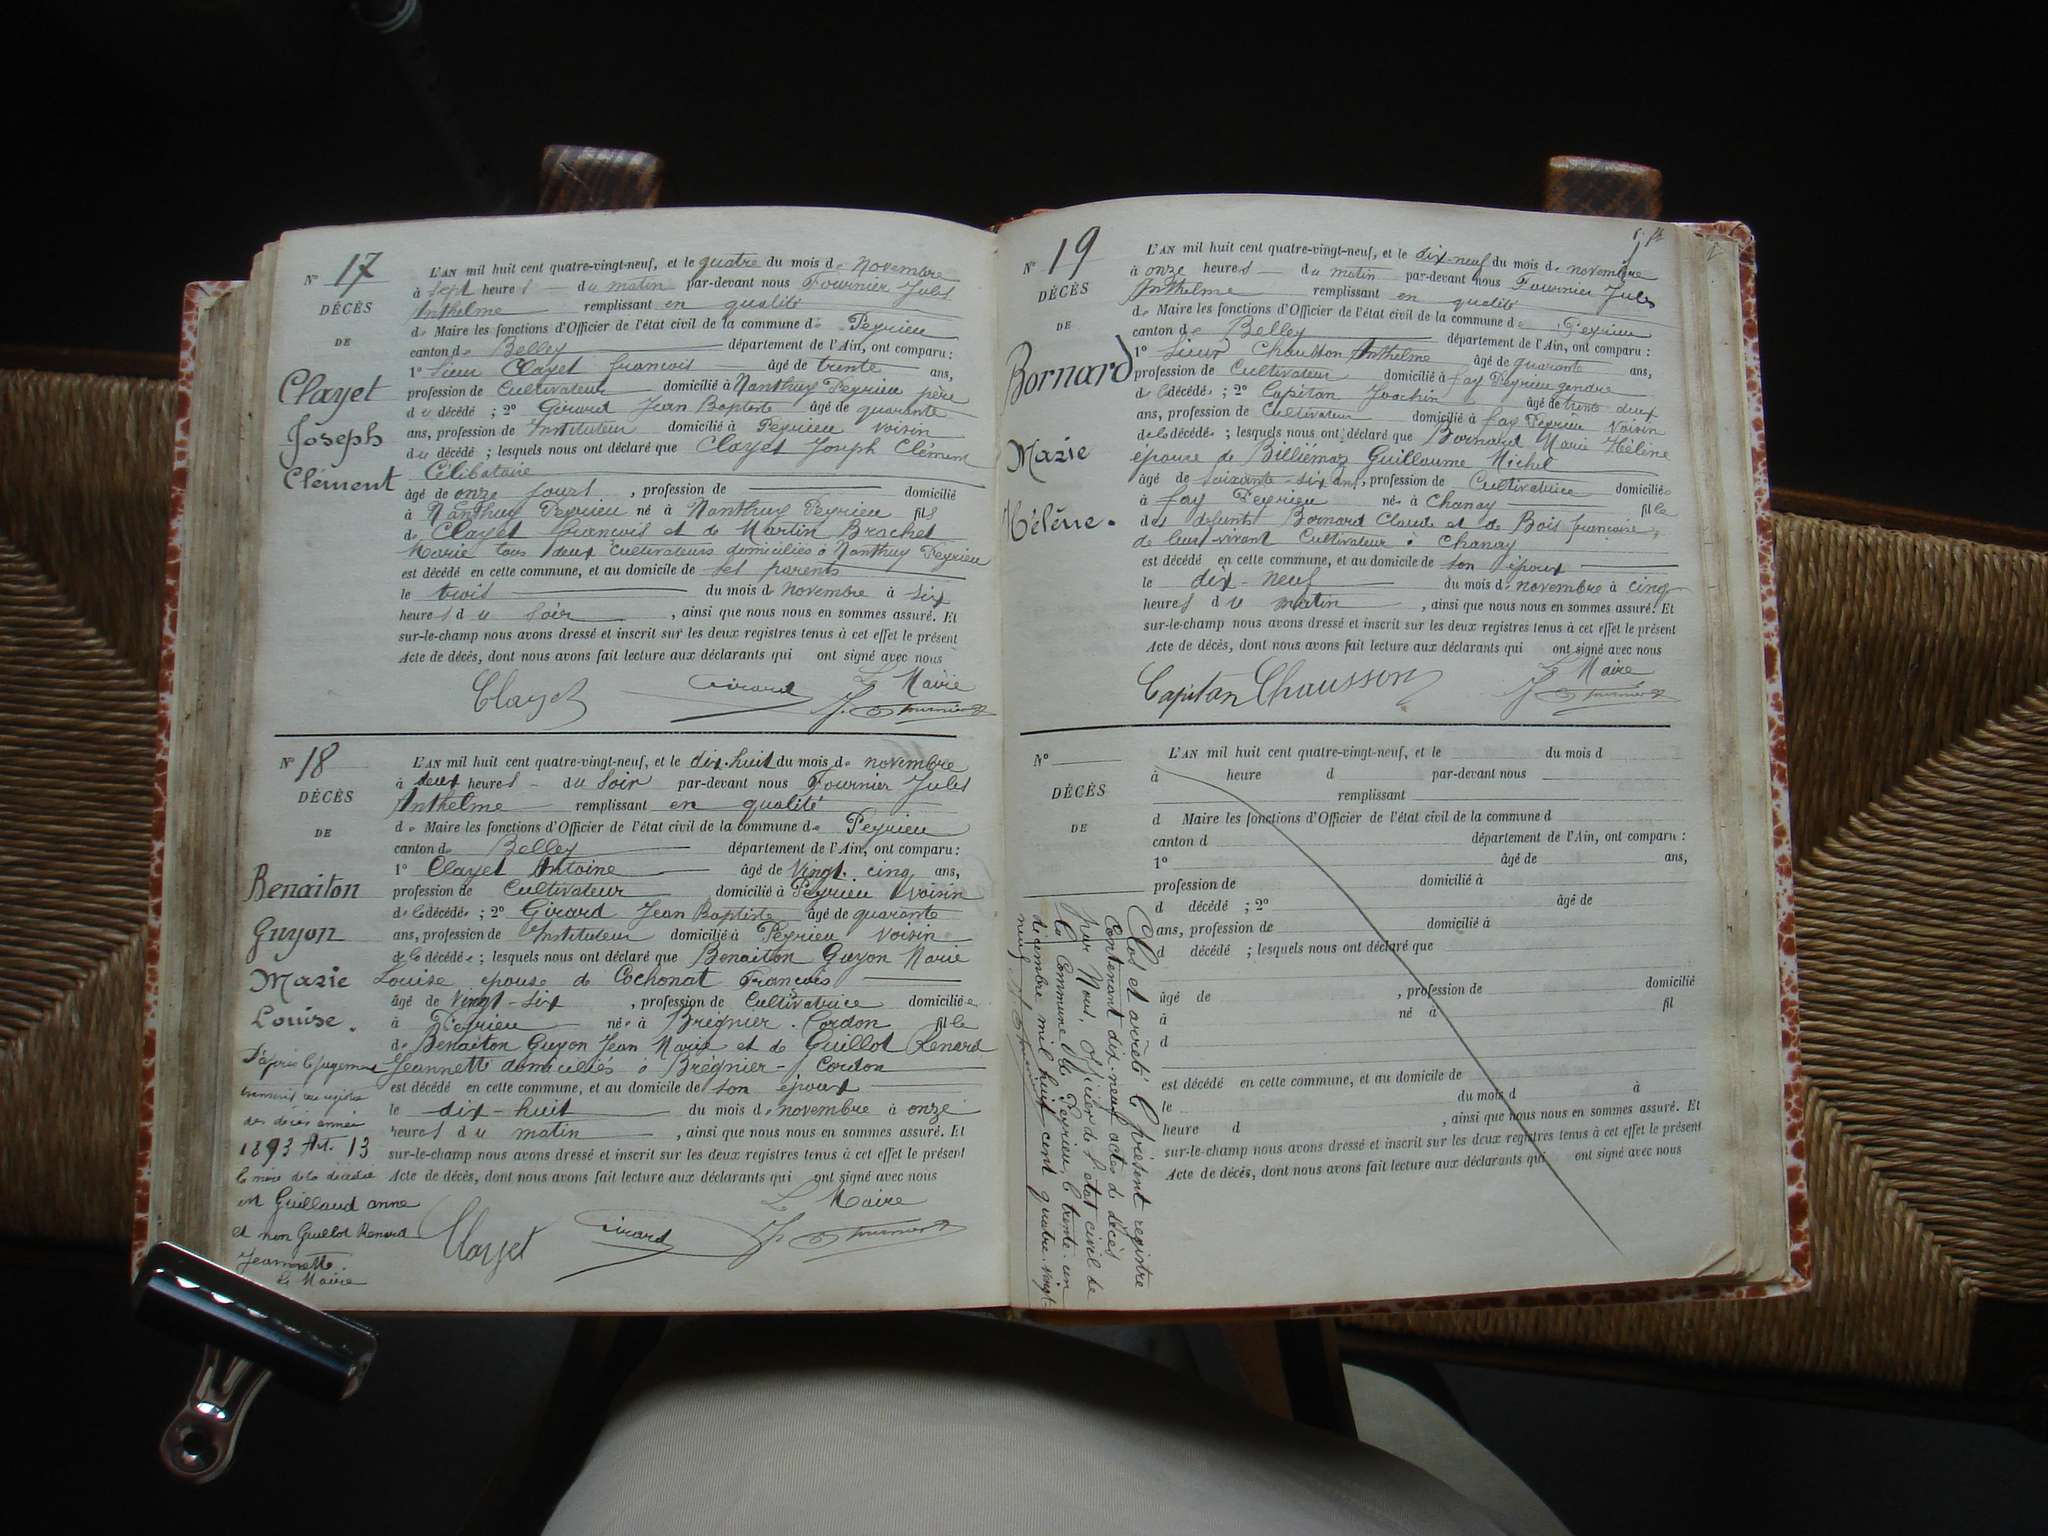 Nº 17
DÉCÈS
DE
Clayet
Joseph
Clément
L'AN mil huit cent quatre-vingt-neuf, et le quatre du mois de novembre
à sept heures du matin par-devant nous Fournier Jules
Anthelme remplissant en qualité
de Maire les fonctions d'Officier de l'état civil de la commune de Peyrieu
canton de Belley département de l'Ain, ont comparu :
1º Sieur Clayet françois âgé de trente ans,
profession de Cultivateur domicilié à Nanthuy Peyrieu père
du décédé ; 2º Gérard Jean Baptiste âgé de quarante
ans, profession de Instituteur domicilié à Peyrieu voisin
du décédé ; lesquels nous ont déclaré que Clayet Joseph Clément
Célibataire
âgé de onze jours , profession de domicilié
à Nanthuy Peyrieu né à Nanthuy Peyrieu fils
de Clayet françois et de Martin Brachet
Marie tous deux cultivateurs domiciliés à Nanthuy Peyrieu
est décédé en cette commune, et au domicile de ses parents
le trois du mois de novembre à six
heures du soir , ainsi que nous nous en sommes assuré. Et
sur-le-champ nous avons dressé et inscrit sur les deux registres tenus à cet effet le présent
Acte de décès, dont nous avons fait lecture aux déclarants qui ont signé avec nous
Le Maire
Clayet Girard J. Fournier
Nº 18
DÉCÈS
DE
Benaiton
Guyon
Marie
Louise.
D'après le jugement
transcrit aux registres
des décès année
1893 Art. 13
la mère de la décédée
est Guillaud anne
et non Guillot Renard
Jeannette.
Le Maire
L'AN mil huit cent quatre-vingt-neuf, et le dix-huit du mois de novembre
à deux heures du soir par-devant nous Fournier Jules
Anthelme remplissant en qualité
de Maire les fonctions d'Officier de l'état civil de la commune de Peyrieu
canton de Belley département de l'Ain, ont comparu :
1º Clayet Antoine âgé de vingt-cinq ans,
profession de Cultivateur domicilié à Peyrieu voisin
de la décédée ; 2º Girard Jean Baptiste âgé de quarante
ans, profession de Instituteur domicilié à Peyrieu voisin
de la décédée ; lesquels nous ont déclaré que Benaiton Guyon Marie
Louise épouse de Cochonat François
âgé de vingt-six , profession de Cultivatrice domiciliée
à Peyrieu née à Brégnier-Cordon fille
de Benaiton Guyon Jean Marie et de Guillot Renard
Jeannette domiciliés à Brégnier-Cordon
est décédé en cette commune, et au domicile de son époux
le dix-huit du mois de novembre à onze
heures du matin , ainsi que nous nous en sommes assuré. Et
sur-le-champ nous avons dressé et inscrit sur les deux registres tenus à cet effet le présent
Acte de décès, dont nous avons fait lecture aux déclarants qui ont signé avec nous
Le Maire
Clayet Girard J. Fournier
Nº 19
DÉCÈS
DE
Bornard
Marie
Hélène.
L'AN mil huit cent quatre-vingt-neuf, et le dix-neuf du mois de novembre
à onze heures du matin par-devant nous Fournier Jules
Anthelme remplissant en qualité
de Maire les fonctions d'Officier de l'état civil de la commune de Peyrieu
canton de Belley département de l'Ain, ont comparu :
1º Sieur Chausson Anthelme âgé de quarante ans,
profession de Cultivateur domicilié à fay Peyrieu gendre
de la décédée ; 2º Capitan Joachin âgé de trente deux
ans, profession de Cultivateur domicilié à fay Peyrieu voisin
de la décédée ; lesquels nous ont déclaré que Bornard Marie Hélène
épouse de Billiémaz Guillaume Michel
âgé de soixante-six ans, profession de Cultivatrice domiciliée
à fay Peyrieu née à Chanay fille
des défunts Bornard Claude et de Bois françoise,
de leur vivant Cultivateur à Chanay
est décédé en cette commune, et au domicile de son époux
le dix-neuf du mois de novembre à cinq
heures du matin , ainsi que nous nous en sommes assuré. Et
sur-le-champ nous avons dressé et inscrit sur les deux registres tenus à cet effet le présent
Acte de décès, dont nous avons fait lecture aux déclarants qui ont signé avec nous
Le Maire
Capitan Chausson J. Fournier
Nº
DÉCÈS
DE
L'AN mil huit cent quatre-vingt-neuf, et le du mois d
à heure d par-devant nous
remplissant
d Maire les fonctions d'Officier de l'état civil de la commune d
canton d département de l'Ain, ont comparu :
1º âgé de ans,
profession de domicilié à
d décédé ; 2º âgé de
ans, profession de domicilié à
d décédé ; lesquels nous ont déclaré que
âgé de , profession de domicilié
à né à fil
d
est décédé en cette commune, et au domicile de
le du mois d à
heure d , ainsi que nous nous en sommes assuré. Et
sur-le-champ nous avons dressé et inscrit sur les deux registres tenus à cet effet le présent
Acte de décès, dont nous avons fait lecture aux déclarants qui ont signé avec nous
Clos et arrêté le présent registre
contenant dix-neuf actes de décès
par Nous, Officier de l'état civil de
la Commune de Peyrieu, le trente-un
décembre mil huit cent quatre-vingt-
neuf J. Fournier